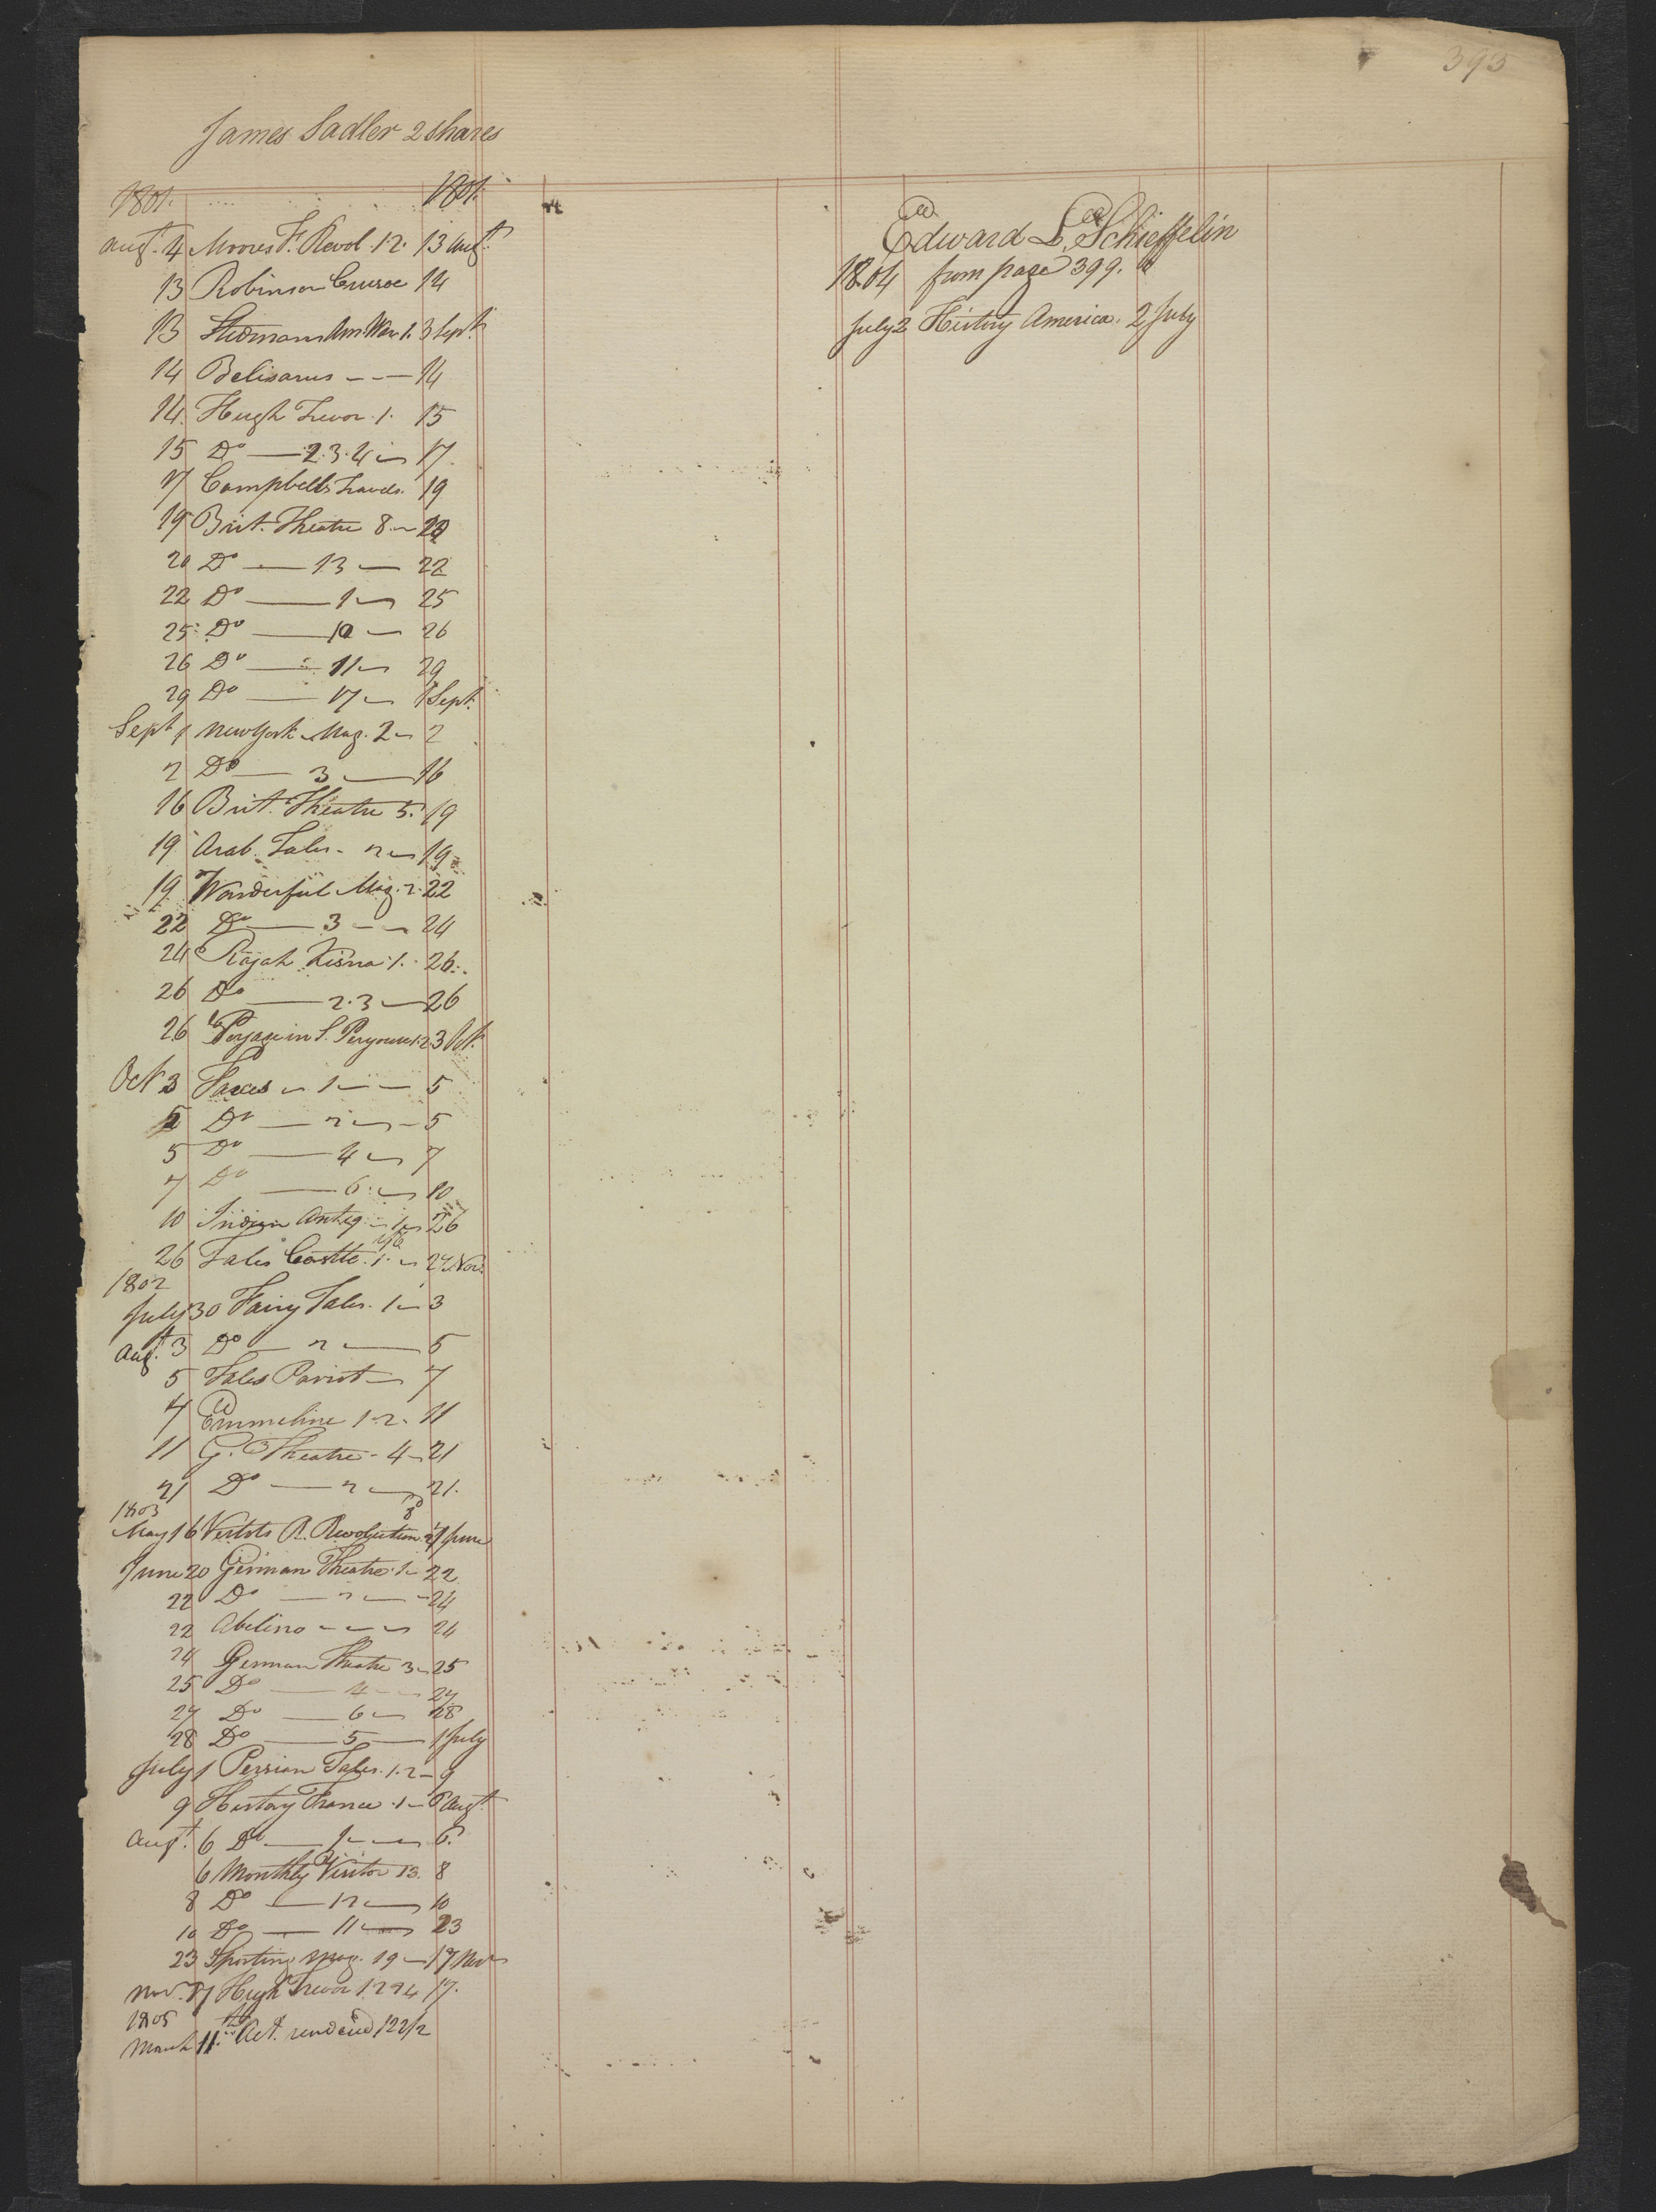 393
James Sadler 2 Shares
1801. 1801.
Augt. 4 Moores F. Revol. 1.2. 13 Augt.
13 Robinson Crusoe 14
13 Stedmans Am. War 1. 3 Sept.
14 Belisarus 14
14 Hugh Trevor 1. 15
15 Do 2.3.4 17.
17 Campbells Travels. 19
19 Brit. Theatre 8. 20
20 Do 13 22
22 Do 1 25
25 Do 10 26
26 Do 11 29
29 Do 17 1 Sept.
Sept 1 New York Mag. 2 2
2 Do 3 16
16 Brit. Theatre 5. 19
19 Arab. Tales 2 19
19 Wonderful Mag. 2. 22
22 Do 3 24
24 Rajah Kisna 1. 26.
26 Do 2.3 26
26 in S. 1.2 3 Oct.
Oct 3 1 5
5 Do 2 5
5 Do 4 7
7 Do 6. 10
10 Indian Antiq. 1 26
26 Tales Castle. 1. 27 Nov.
1802
July 30 Fairy Tales. 1 3
Augt. 3 Do 2 5
5 Tales Parrot 7
7 Emmeline 1.2. 11
11 G. Theatre 4 21
21 Do 2 21.
1803
May 16 Vertots R. Revolution June
June 20 German Theatre 1 22
22 Do 2 24
22 Abelino 24
24 German Theatre 3 25
25 Do 4 27
27 Do 6 28
28 Do 5 1 July
July 1 Persian Tales. 1.2 9
9 History France 1 6 Augt.
Augt. 6 Do 6.
6 Monthly Visitor 13. 8
8 Do 12 10
10 Do 11 23
23 Sporting Mag. 19 17 Nov
Nov. 17 Hugh Trevor 17.
1805
March 11th Act. rendered 122/2
Edward L. Schieffelin
1804 from page 399.
July 2 History America. 2 July